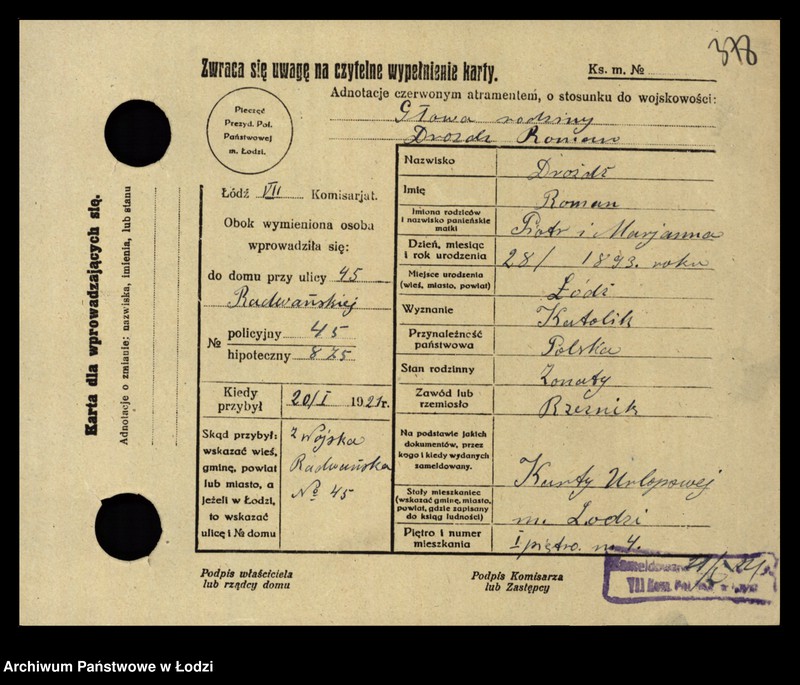 378
Zwraca się uwagę na czytelne wypełnienie karty.
Ks. m. №
Adnotacje czerwonym atramentem, o stosunku do wojskowości:
Głowa rodziny
Drozdz Roman
Pieczęć
Prezyd. Pol.
Państwowej
m. Łodzi.
Karta dla wprowadzających się.
Adnotacje o zmianie: nazwiska, imienia, lub stanu
Łódź VII Komisarjat.
Obok wymieniona osoba
wprowadziła się:
do domu przy ulicy 45
Radwańskiej
№ policyjny 45
hipoteczny 825
Kiedy przybył 20/I 1921r.
Skąd przybył:
wskazać wieś,
gminę, powiat
lub miasto, a
jeżeli w Łodzi,
to wskazać
ulicę i № domu
z Wojska
Radwańska
№ 45
Nazwisko Drozdz
Imię Roman
Imiona rodziców
i nazwisko panieńskie
matki
Piotr i Marjanna
Dzień, miesiąc
i rok urodzenia
28/ 1893. roku
Miejsce urodzenia
(wieś, miasto, powiat)
Łódź
Wyznanie Katolik
Przynależność
państwowa
Polska
Stan rodzinny Żonaty
Zawód lub
rzemiosło
Rzeznik
Na podstawie jakich
dokumentów, przez
kogo i kiedy wydanych
zameldowany.
Karty Urlopowej
Stały mieszkaniec
(wskazać gminę, miasto,
powiat, gdzie zapisany
do ksiąg ludności)
m. Lodzi
Piętro i numer
mieszkania
I piętro. m 4.
Zameldowano 21/I 21 r.
VII Kom. Pol.
Podpis właściciela
lub rządcy domu
Podpis Komisarza
lub Zastępcy
Archiwum Państwowe w Łodzi